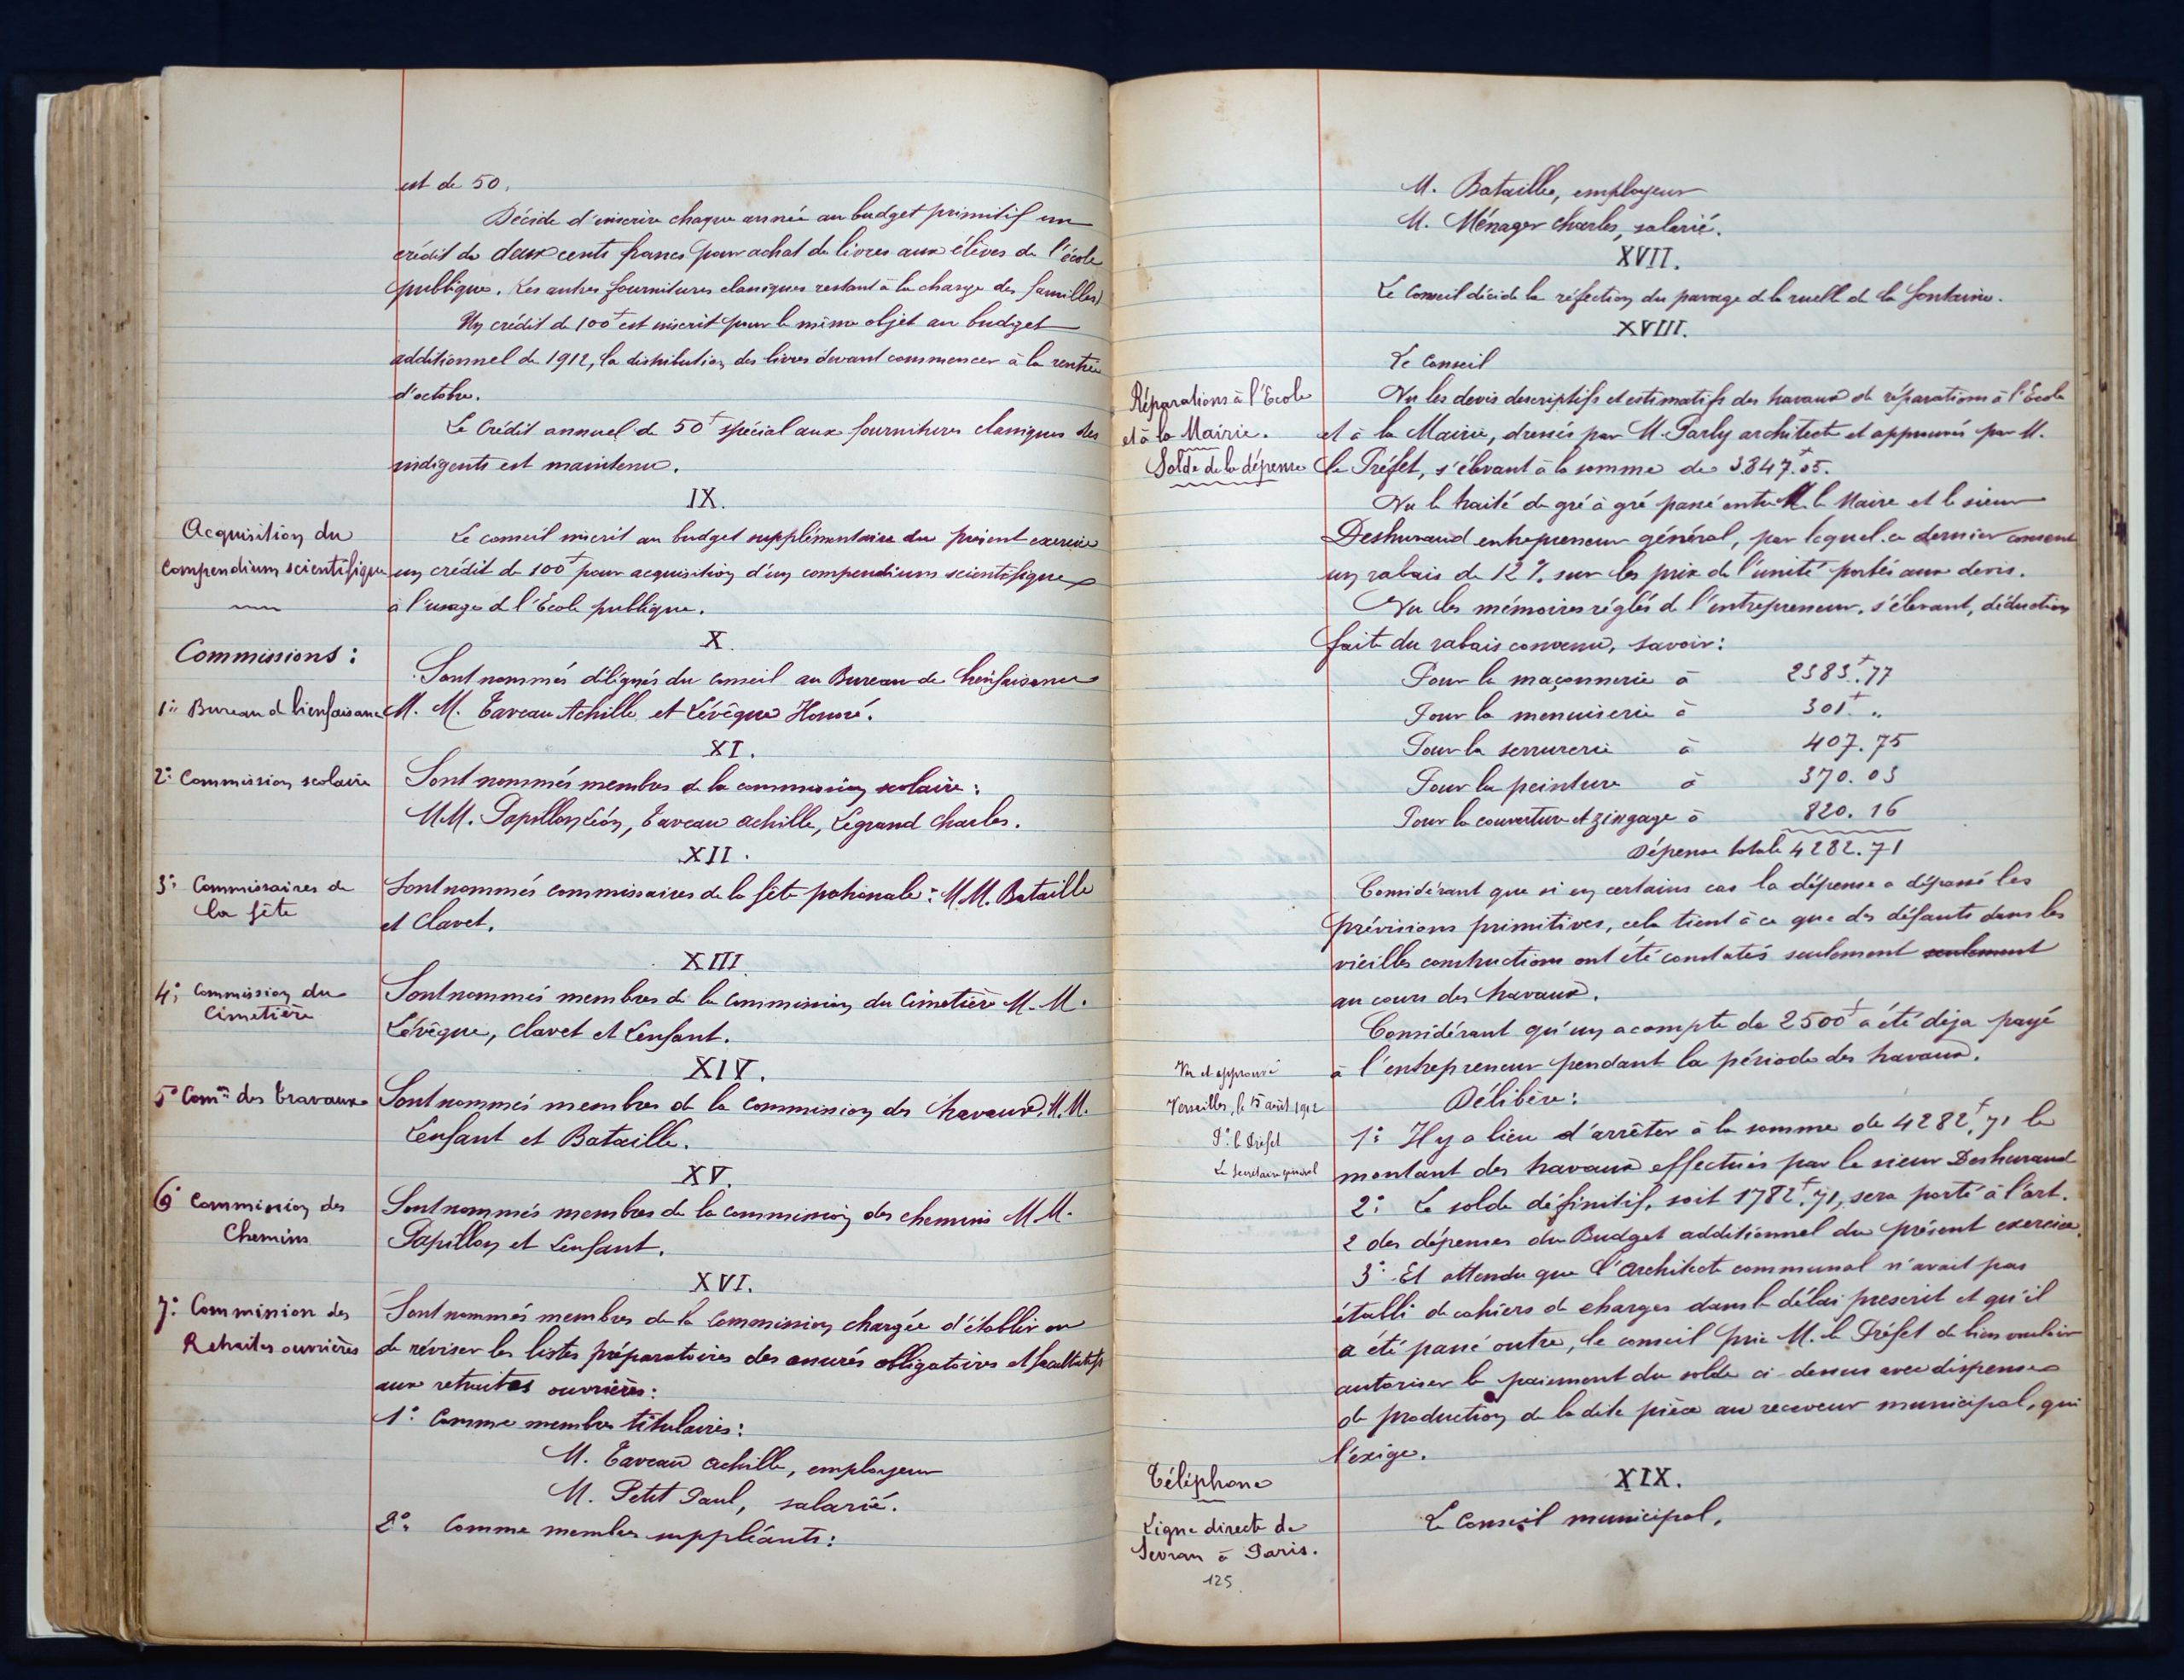 est de 50.
Décide d'inscrire chaque année au budget primitif un
crédit de deux cents francs pour achat de livres aux élèves de l'école
publique. Les autres fournitures classiques restant à la charge des familles)
Un crédit de 100f est inscrit pour le même objet au budget
additionnel de 1912, la distribution des livres devant commencer à la rentrée
d'octobre.
Le Crédit annuel de 50f spécial aux fournitures classiques des
indigents est maintenu.
IX.
Acquisition du
Compendium scientifique
Le conseil inscrit au budget supplémentaire du présent exercice
un crédit de 100f pour acquisition d'un compendium scientifique
à l'usage de l'Ecole publique.
X.
Commissions :
1° Bureau de bienfaisance
Sont nommés délégués du conseil au Bureau de bienfaisance
M. M. Taveau Achille et Lévêque Honoré.
XI.
2° Commission scolaire
Sont nommés membres de la commission scolaire :
MM. Papillon Léon, Taveau achille, Legrand Charles.
XII.
3° Commissaires de
la fête
Sont nommés commissaires de la fête patronale : M.M. Bataille
et Clavet.
XIII
4° Commission du
Cimetière
Sont nommés membres de la Commission du Cimetière M. M.
Lévêque, Clavet et Lenfant.
XIV.
5° Comon des Travaux
Sont nommés membres de la commission des travaux, M.M.
Lenfant et Bataille.
XV.
6° Commission des
Chemins
Sont nommés membres de la commission des chemins M M.
Papillon et Lenfant.
XVI.
7° Commission des
Retraites ouvrières
Sont nommés membres de la Commission chargée d'établir ou
de réviser les listes préparatoires des assurés obligatoires et facultatifs
aux retraites ouvrières :
1° Comme membres titulaires :
M. Taveau achille, employeur
M. Petit Paul, salarié.
2° Comme membres suppléants :
M. Bataille, employeur
M. Ménager Charles, salarié.
XVII.
Le Conseil décide la réfection du pavage de la ruelle de la fontaine.
XVIII.
Le Conseil
Réparations à l'Ecole
et à la Mairie.
Solde de la dépense
Vu les devis descriptifs et estimatifs des travaux de réparations à l'École
et à la Mairie, dressés par M. Parly architecte et approuvés par M.
le Préfet, s'élevant à la somme de 3847f.05.
Vu le traité de gré à gré passé entre M. le Maire et le sieur
Deshuraud entrepreneur général, par lequel ce dernier consent
un rabais de 12 % sur les prix de l'unité portés aux devis.
Vu les mémoires réglés de l'entrepreneur, s'élevant, déduction
faite du rabais convenu, savoir :
Pour la maçonnerie à 2383f.77
Pour la menuiserie à 301f. "
Pour la serrurerie à 407.75
Pour la peinture à 370.03
Pour la couverture et zingage à 820.16
Dépense totale 4282.71
Considérant que si en certains cas la dépense a dépassé les
prévisions primitives, cela tient à ce que des défauts dans les
vieilles constructions ont été constatés seulement seulement
au cours des travaux.
Considérant qu'un acompte de 2500f a été déjà payé
à l'entrepreneur pendant la période des travaux.
Vu et approuvé
Versailles, le 15 août 1912
Pr le Préfet
Le Secrétaire général
Délibère :
1° Il y a lieu d'arrêter à la somme de 4282f,71 le
montant des travaux effectués par le sieur Deshuraud
2° Le solde définitif, soit 1782f,71, sera porté à l'art.
2 des dépenses du Budget additionnel du présent exercice.
3° Et attendu que l'Architecte communal n'avait pas
établi de cahiers de charges dans le délai prescrit et qu'il
a été passé outre, le conseil prie M. le Préfet de bien vouloir
autoriser le paiement du solde ci-dessus avec dispense
de production de la dite pièce au receveur municipal, qui
l'exige.
XIX.
Téléphone
Ligne directe de
Sevran à Paris.
Le Conseil municipal,
125